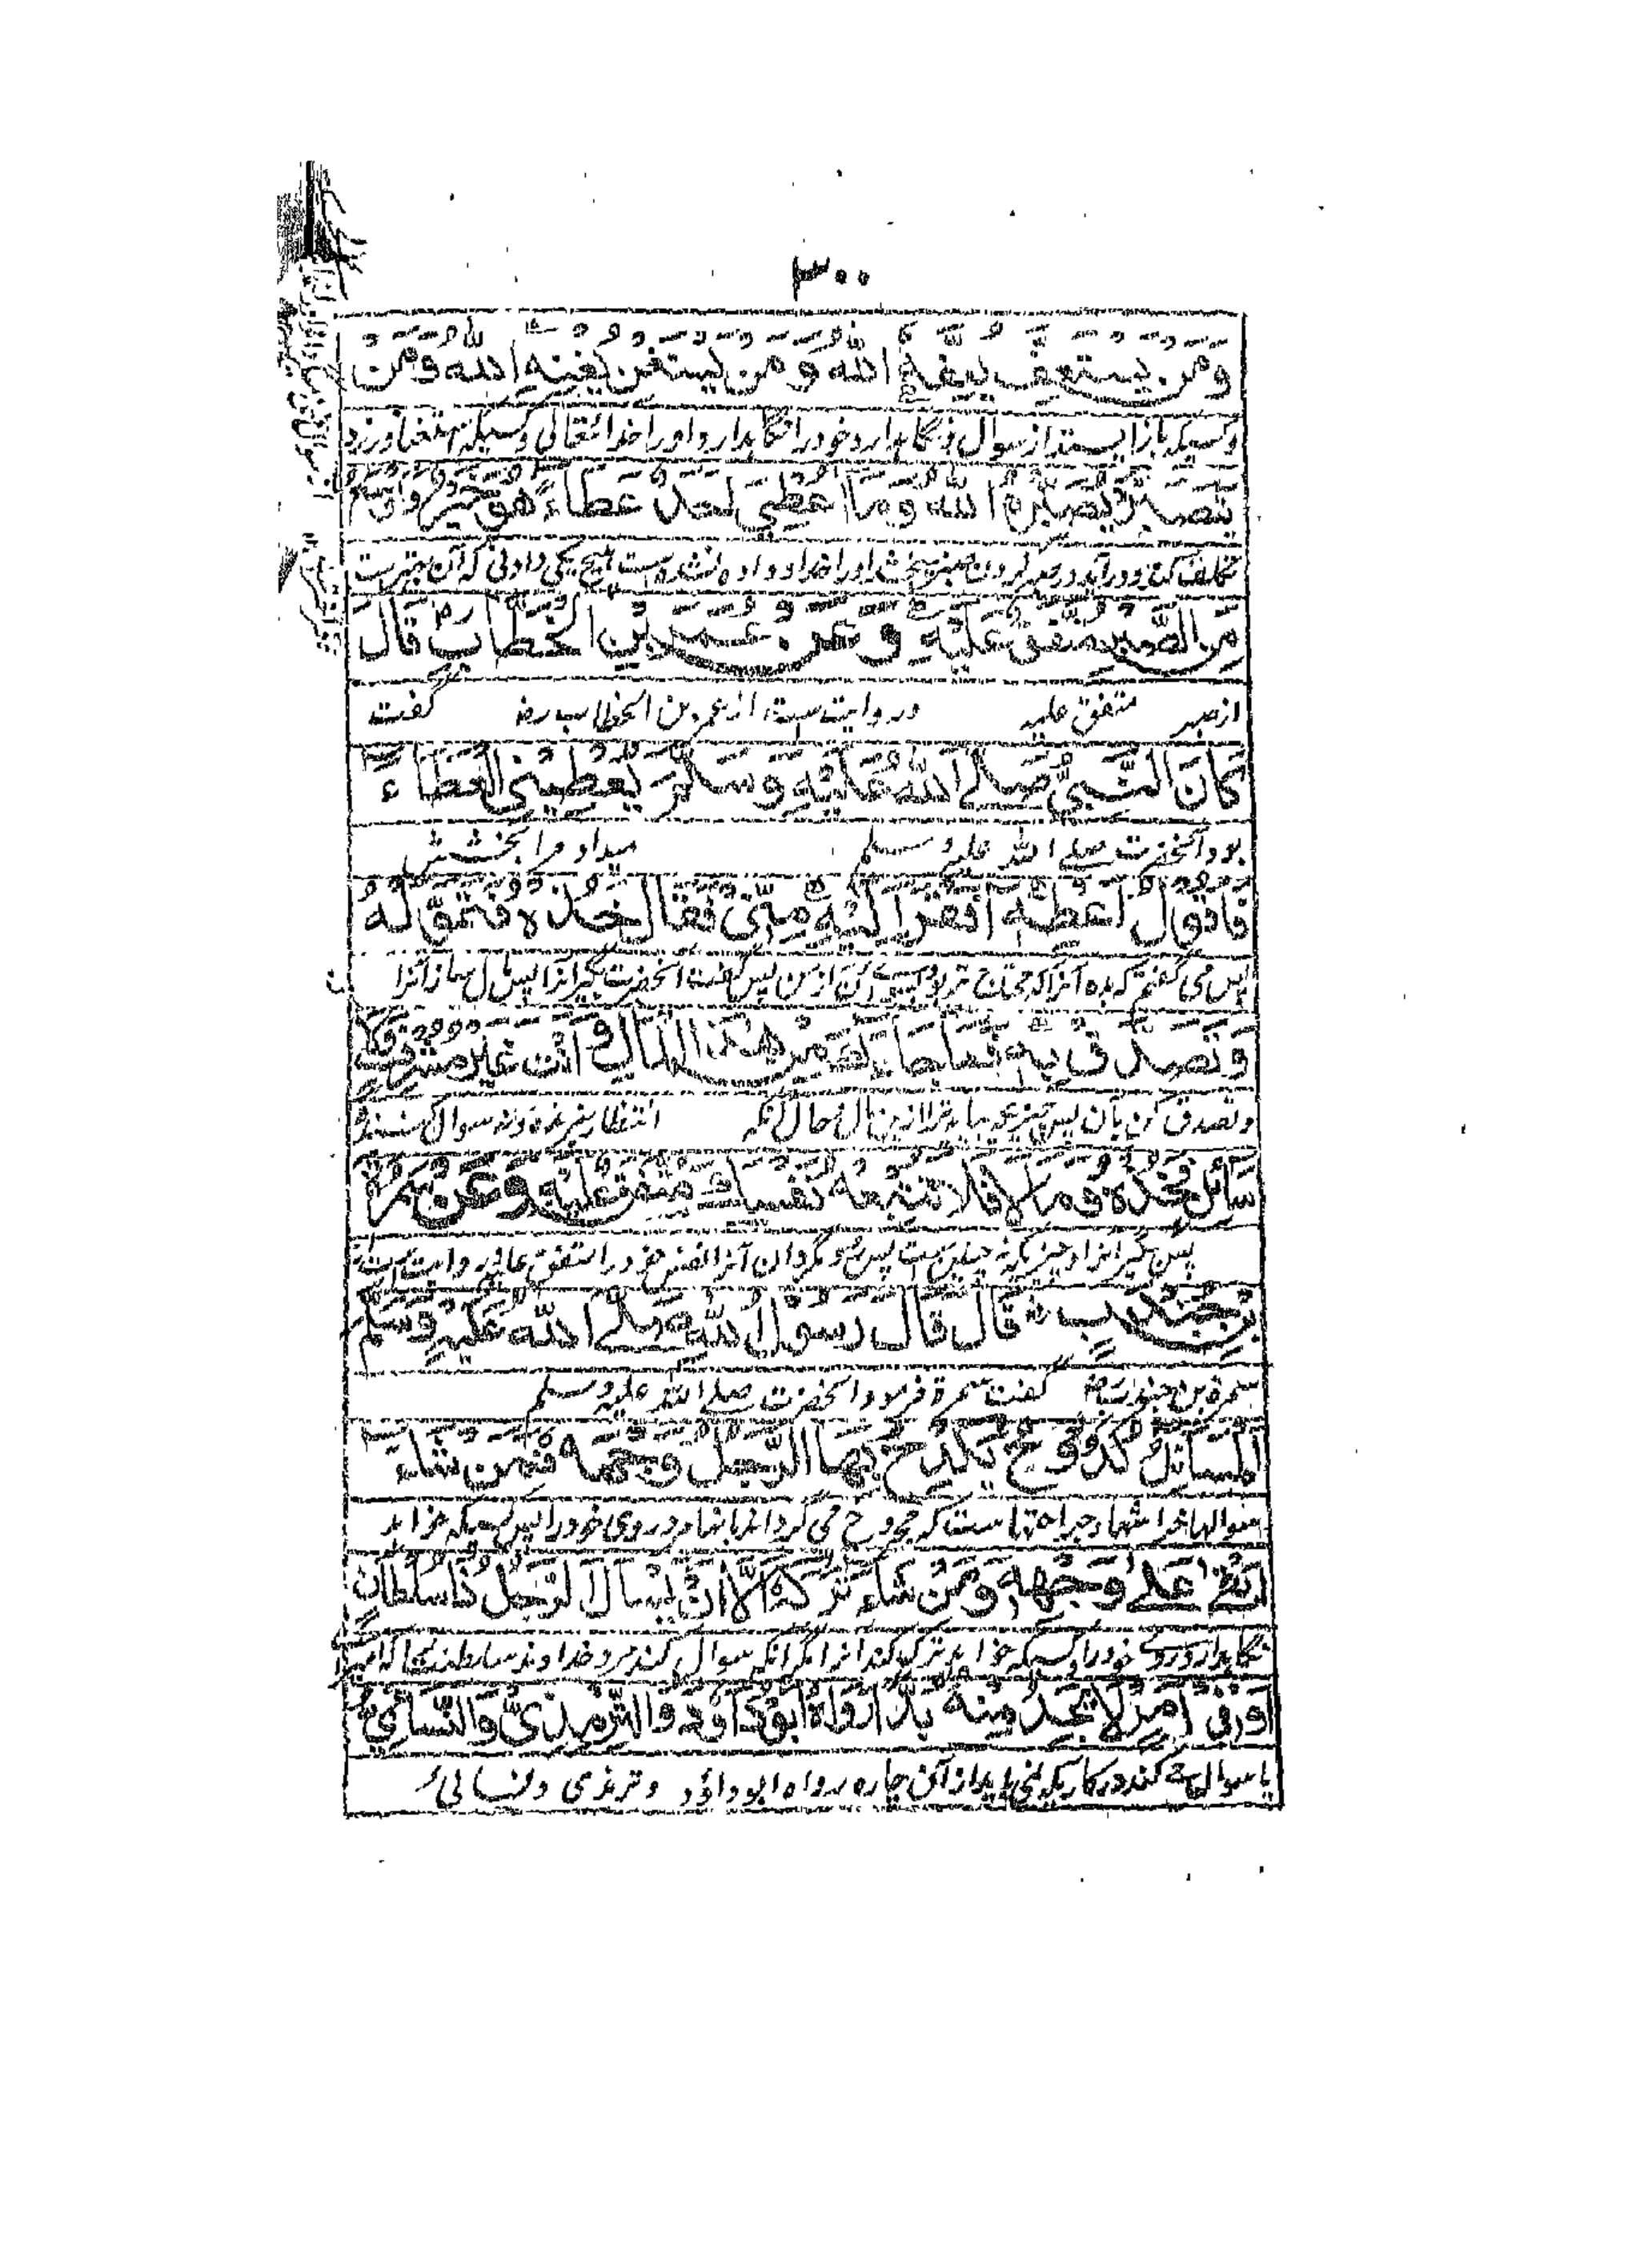 ٣٠٠
وَمَن يَستعفِف يعفّه الله وَمن يَستغن يُغنِه الله ومن
وکسیکہ باز ایستد از سوال و نگاہدارد خود را نگاہدارد او را خدا تعالی وکسیکہ استغنا ورزد
يتصبّر يُصبّره الله وَمَا أعطي أحد عطاءً هو خير وأوسع
تکلف کند و در آید در صبر کردن صبر بخشد او را خدا و داده نشده است هیچ یکی دادنی که آن بهترست
من الصَّبر متفق عليه وعن عمر بن الخطاب رض قال
از صبر متفق علیہ و روایت ست از عمر بن الخطاب رض گفت
كان النّبيّ صلى الله عليه وسلم يُعطيني العطاء
بود آنحضرت صلے اللہ علیہ وسلم میداد مرا بخشش
فأقول أعطه أفقر إليه منّي فقال خذه فتموّله
پس می گفتم کہ بدہ آنرا کہ محتاج تر بود بسوی آن از من پس گفت آنحضرت بگیر آنرا پس مال ساز آنرا
وتصدق به فما جاءك من هذا المال وأنت غير مشرف ولا
و تصدق کن بآن پس چیزیکہ بیاید ترا ازین مال و حال آنکہ انتظار برندہ و نہ سوال کنندہ
سائل فخذه وما لا فلا تتبعه نفسك متفق عليه وعن سمرة
پس بگیر آنرا و چیزیکہ نہ چنین ست پس مگردان آنرا نفس خود را متفق علیہ و روایت ست از
بن جندب رض قال قال رسول الله صلى الله عليه وسلم
سمرة بن جندب رض گفت سمرة فرمود آنحضرت صلے اللہ علیہ وسلم
المسائل كدوح يكدح بها الرّجل وجهه فمن شاء
سوالہا خراشہا و جراحتہا ست کہ مجروح می گرداند بآنہا مرد روی خود را پس کسیکہ خواہد
أبقى على وجهه ومن شاء تركه إلّا أن يسأل الرّجل ذا سلطان
نگاہدارد روی خود را و کسیکہ خواہد ترک کند آنرا مگر آنکہ سوال کند مرد خداوند سلطنت را
أو في أمر لا يجد منه بدّا رواه أبو داود والترمذيّ والنّسائيّ
یا سوال کند در کاریکہ نمی یابد از آن چارہ رواہ ابو داؤد و ترمذی و نسائی